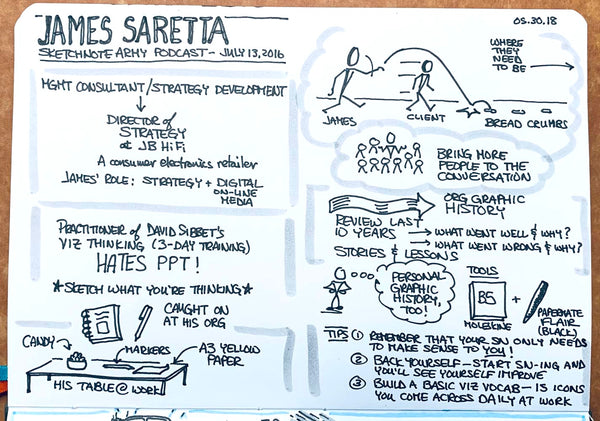 JAMES SARETTA
SKETCHNOTE ARMY PODCAST - JULY 13, 2016
MGMT CONSULTANT/STRATEGY DEVELOPMENT
DIRECTOR of
STRATEGY
at JB HiFi
A consumer electronics retailer
JAMES' ROLE: STRATEGY + DIGITAL
ON-LINE
MEDIA
PRACTITIONER of DAVID SIBBET'S
VIZ THINKING (3-DAY TRAINING)
HATES PPT!
*SKETCH WHAT YOU'RE THINKING*
CAUGHT ON
AT HIS ORG
CANDY
MARKERS
A3 YELLOW
PAPER
HIS TABLE @ WORK
05.30.18
WHERE
THEY
NEED
TO BE
JAMES
CLIENT
BREAD CRUMBS
BRING MORE
PEOPLE TO THE
CONVERSATION
ORG GRAPHIC
HISTORY
REVIEW LAST
10 YEARS
WHAT WENT WELL & WHY?
WHAT WENT WRONG & WHY?
STORIES & LESSONS
PERSONAL
GRAPHIC
HISTORY,
TOO!
TOOLS
B5
MOLESKINE
+
PAPERMATE
FLAIR
(BLACK)
TIPS
1 REMEMBER THAT YOUR SN ONLY NEEDS
TO MAKE SENSE TO YOU!
2 BACK YOURSELF - START SN-ING AND
YOU'LL SEE YOURSELF IMPROVE
3 BUILD A BASIC VIZ VOCAB - 15 ICONS
YOU COME ACROSS DAILY AT WORK